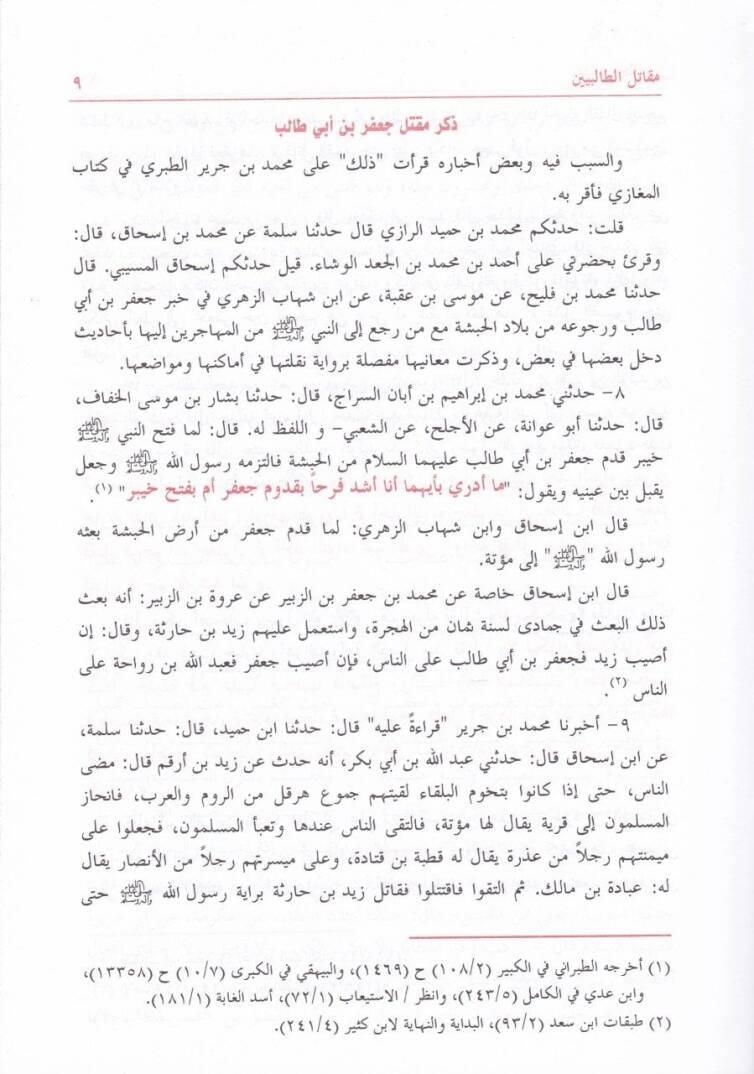 مقاتل الطالبيين ٩
ذكر مقتل جعفر بن أبي طالب
والسبب فيه وبعض أخباره قرأت "ذلك" على محمد بن جرير الطبري في كتاب
المغازي فأقر به.
قلت: حدثكم محمد بن حميد الرازي قال حدثنا سلمة عن محمد بن إسحاق، قال:
وقرئ بحضرتي على أحمد بن محمد بن الجعد الوشاء. قيل حدثكم إسحاق المسيبي. قال
حدثنا محمد بن فليح، عن موسى بن عقبة، عن ابن شهاب الزهري في خبر جعفر بن أبي
طالب ورجوعه من بلاد الحبشة مع من رجع إلى النبي ﷺ من المهاجرين إليها بأحاديث
دخل بعضها في بعض، وذكرت معانيها مفصلة برواية نقلتها في أماكنها ومواضعها.
٨- حدثني محمد بن إبراهيم بن أبان السراج، قال: حدثنا بشار بن موسى الخفاف،
قال: حدثنا أبو عوانة، عن الأجلح، عن الشعبي- و اللفظ له. قال: لما فتح النبي ﷺ
خيبر قدم جعفر بن أبي طالب عليهما السلام من الحبِشة فالتزمه رسول الله ﷺ وجعل
يقبل بين عينيه ويقول: "ما أدري بأيهما أنا أشد فرحاً بقدوم جعفر أم بفتح خيبر" (١).
قال ابن إسحاق وابن شهاب الزهري: لما قدم جعفر من أرض الحبشة بعثه
رسول الله "ﷺ" إلى مؤتة.
قال ابن إسحاق خاصة عن محمد بن جعفر بن الزبير عن عروة بن الزبير: أنه بعث
ذلك البعث في جمادى لسنة شان من الهجرة، واستعمل عليهم زيد بن حارثة، وقال: إن
أصيب زيد فجعفر بن أبي طالب على الناس، فإن أصيب جعفر فعبد الله بن رواحة على
الناس (٢).
٩- أخبرنا محمد بن جرير "قراءةً عليه" قال: حدثنا ابن حميد، قال: حدثنا سلمة،
عن ابن إسحاق قال: حدثني عبد الله بن أبي بكر، أنه حدث عن زيد بن أرقم قال: مضى
الناس، حتى إذا كانوا بتخوم البلقاء لقيتهم جموع هرقل من الروم والعرب، فانحاز
المسلمون إلى قرية يقال لها مؤتة، فالتقى الناس عندها وتعبأ المسلمون، فجعلوا على
ميمنتهم رجلاً من عذرة يقال له قطبة بن قتادة، وعلى ميسرتهم رجلاً من الأنصار يقال
له: عبادة بن مالك. ثم التقوا فاقتتلوا فقاتل زيد بن حارثة براية رسول الله ﷺ حتى
(١) أخرجه الطبراني في الكبير (١٠٨/٢) ح (١٤٦٩)، والبيهقي في الكبرى (١٠/٧) ح (١٣٣٥٨)،
وابن عدي في الكامل (٢٤٣/٥)، وانظر / الاستيعاب (٧٢/١)، أسد الغابة (١٨١/١).
(٢) طبقات ابن سعد (٩٣/٢)، البداية والنهاية لابن كثير (٢٤١/٤).